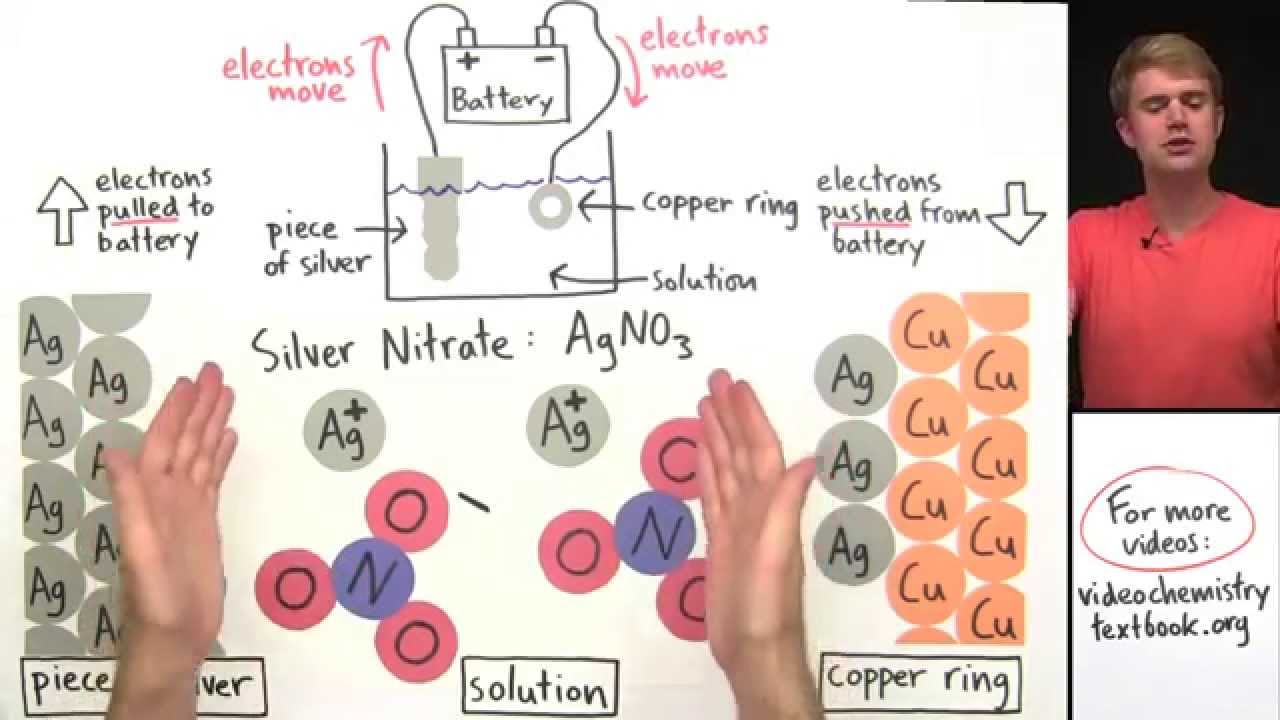 electrons
move
+
−
Battery
electrons
move
electrons
pulled to
battery
piece
of silver
copper ring
solution
electrons
pushed from
battery
Silver Nitrate: AgNO₃
Ag
Ag
Ag
Ag
Ag
Ag⁺
Ag⁺
O
−
O
N
O
O
N
Ag
Ag
Ag
Cu
Cu
Cu
Cu
Cu
Cu
Cu
Cu
piece
solution
copper ring
For more
videos:
videochemistry
textbook.org